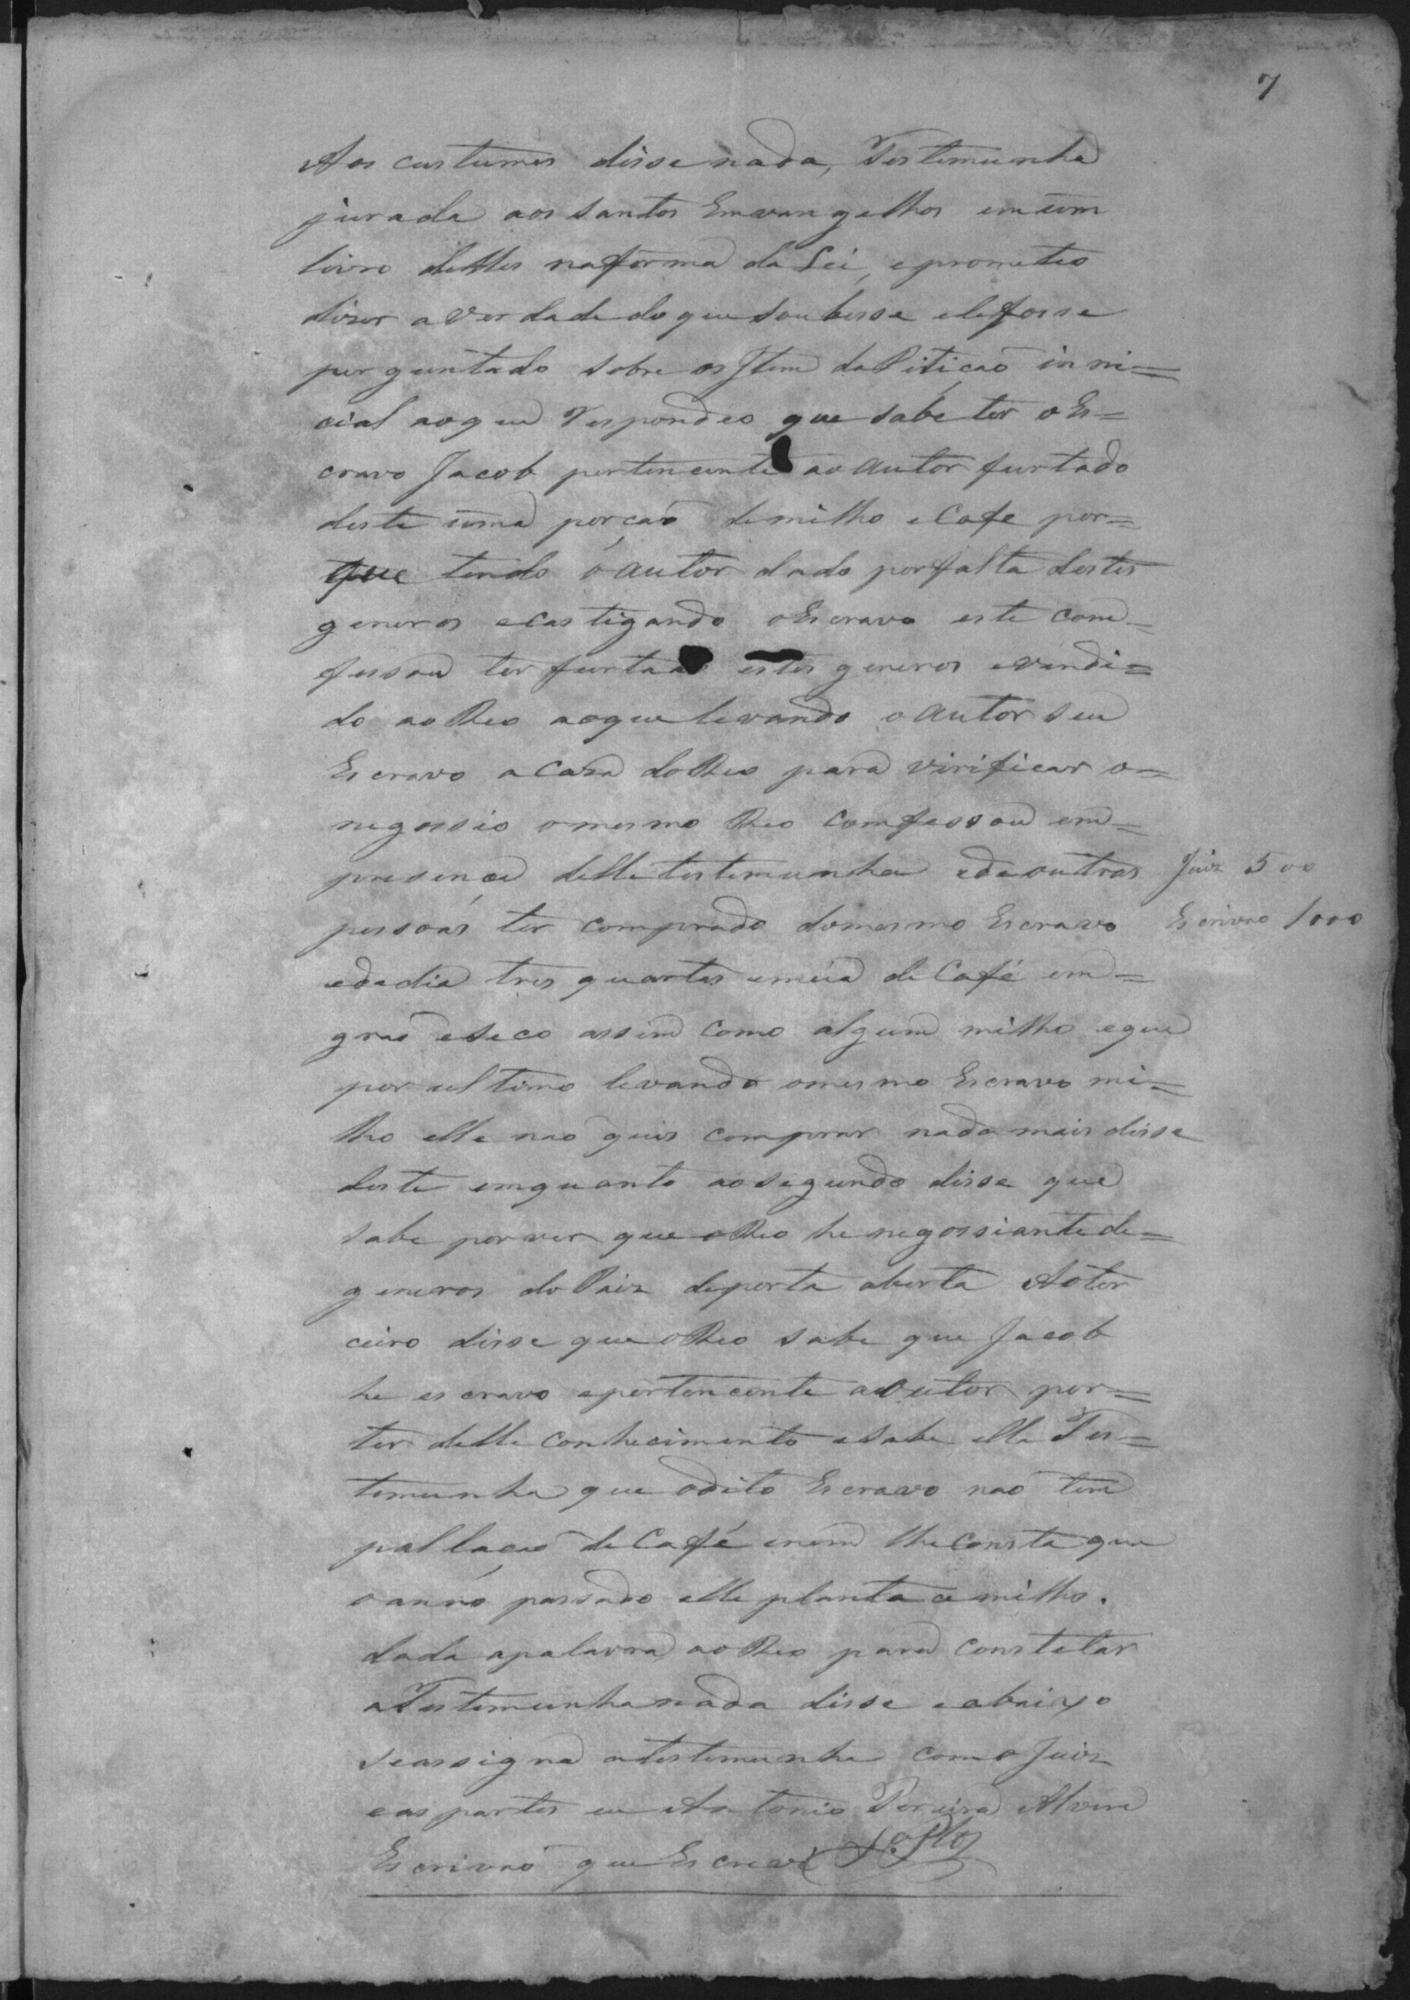 7
Aos custumes disse nada, Testemunha
jurada aos santos Emvangelhos em um
livro delles na forma da Lei, e prometeo
dizer a verdade do que soubesse e lefosse
perguntado sobre os Item da Piticaõ inni=
cial ao que respondeo que sabe ter o Es=
cravo Jacob pertencente ao autor furtado
deste uma porcaõ de milho e Cafe por=
que tendo o autor dado por falta destes
generos e castigando o Escravo este com=
fessou ter furtado estes generos e vendi=
do ao Reo ao que levando o autor seu
Escravo a Caza do Reo para virificar o=
negossio o mesmo Reo comfessou em=
presença delle testemunha e de outras
Juiz 500
pessoás ter comprado do mesmo Escravo
Escrivaõ 1000
e de dia tres quartas e meia de Café em=
graõ e seco assim como algum milho e que
por ultimo levando o mesmo Escravo mi=
lho elle naõ quis comprar nada mais disse
deste emquanto ao segundo disse que
sabe por ver que o Reo he negossiante de=
generos do Paiz de porta aberta Ao ter
ceiro disse que o Reo sabe que Jacob
he escravo e pertencente ao autor por=
ter delle conhecimento e sabe elle Tes=
temunha que o dito Escravo naõ tem
pallacaõ de Café e nem lhe consta que
o anno passado elle plantace milho.
dada a palavra ao Reo para constetar
a Testemunha nada disse e abaixo
se assigna a testemunha com o Juiz
e as partes eu Antonio Pereira Alvim
Escrivaõ que Escrevi